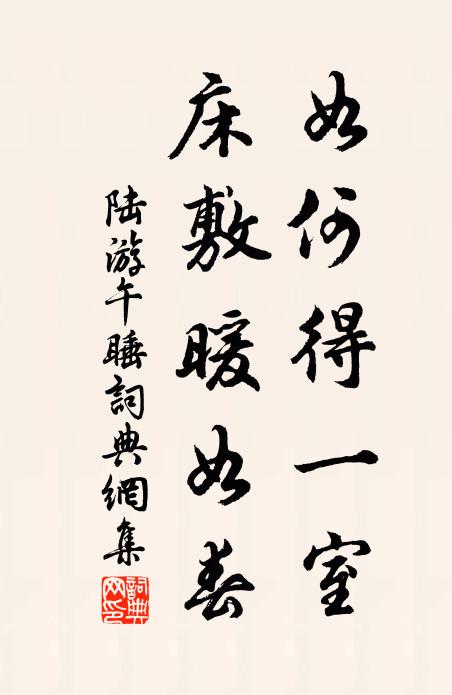 如何得一室
床敷暖如春
陆游午睡詞典網集
詞典网印